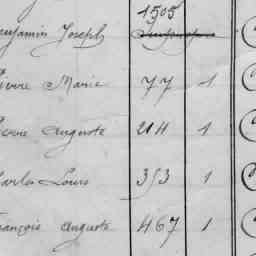 1505
Benjamin Joseph
Pierre Marie 77 1
Pierre Auguste 214 1
Charles Louis 353 1
François Auguste 467 1